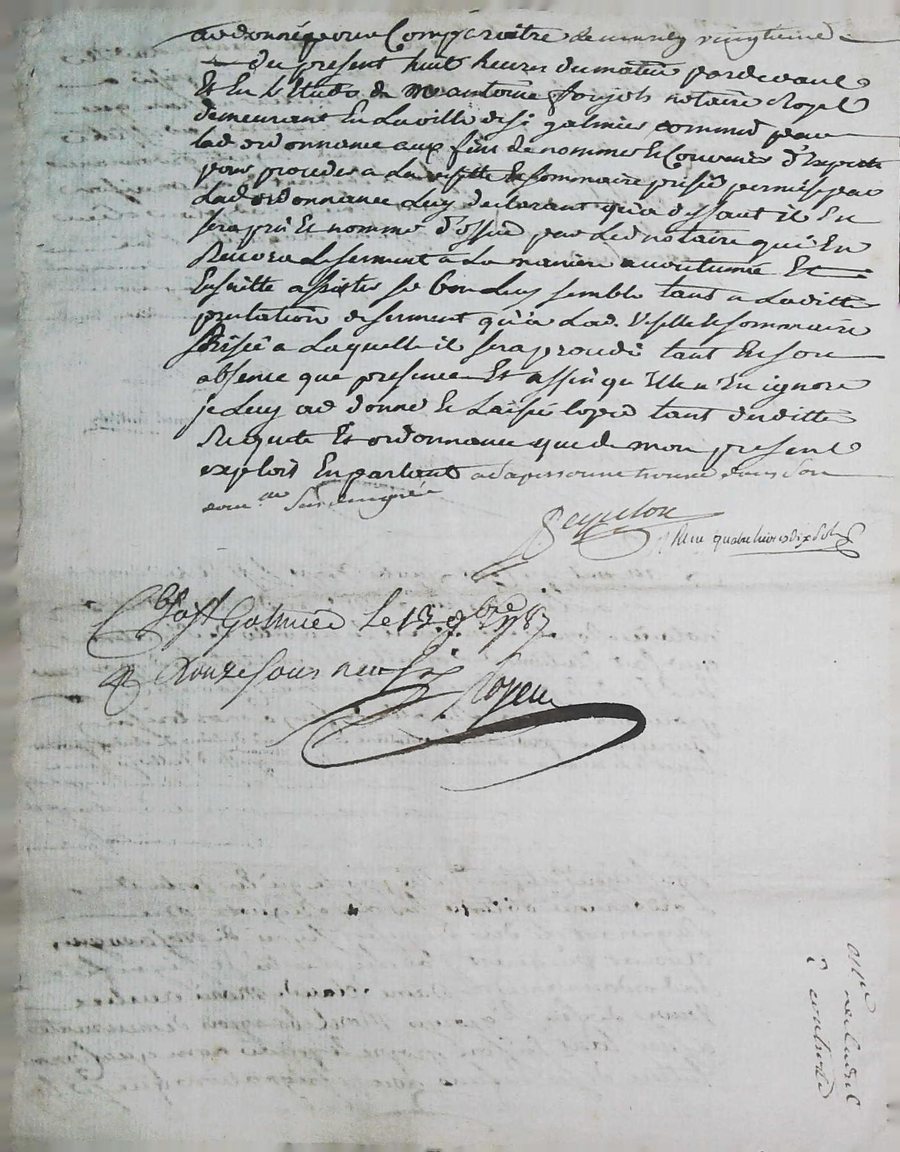 ay donné pour Comparoitre vingtiesme
du present huit heures du matin pardevant
Et En l'Etude de Me antoine notaire Royal
demeurant En La ville de St galmier commis par
lad ordonnance aux fins de nommer Et Convenir d'Experts
pour proceder a La visitte Et sommaire prisée permis par
Lad ordonnance Luy declarant qu'a deffaut il En
sera pris Et nommé d'office par Led notaire qui En
Recevra Le serment a La maniere accoutumée Et
Ensuitte assister si bon Luy semble tant a Laditte
prestation de serment qu'a Lad. Visitte Et sommaire
prisée a Laquelle il sera procedé tant En son
absence que presence Et affin qu'Elle n'En ignore
je Luy ay donné Et Laissé Copie tant de ditte
Requete Et ordonnance que de mon present
exploit En parlant a sa personne trouvée dans son
dom.
quatre livres dix sols
St Galmier Le 13 8bre 1787.
R Douze sous neuf